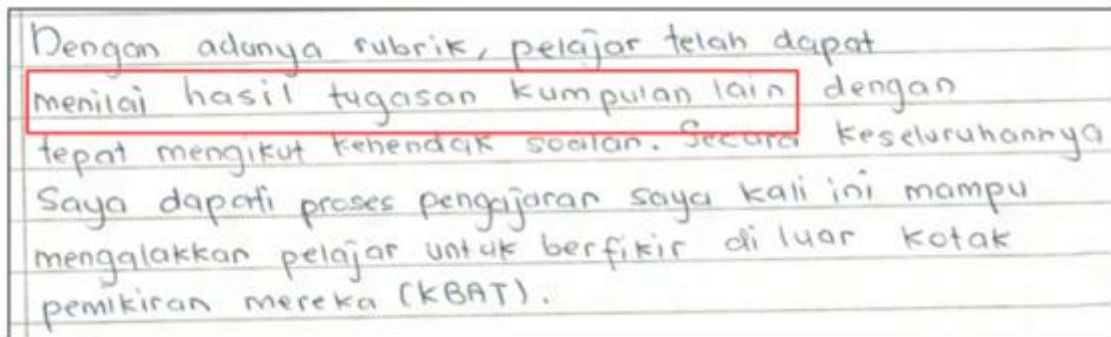 Dengan adanya rubrik, pelajar telah dapat
menilai hasil tugasan kumpulan lain dengan
tepat mengikut kehendak soalan. Secara keseluruhannya
Saya dapati proses pengajaran saya kali ini mampu
mengalakkan pelajar untuk berfikir di luar kotak
pemikiran mereka (KBAT).